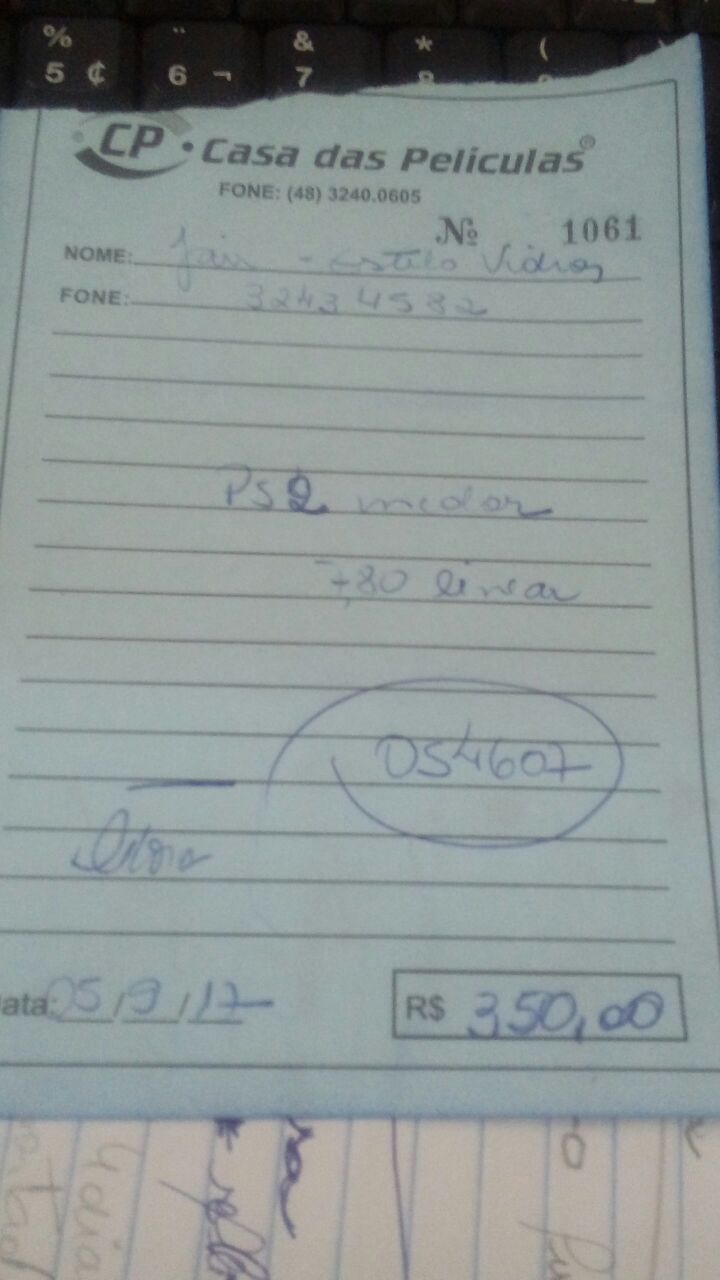 % " & * (
5 ¢ 6 ¬ 7 8
CP • Casa das Películas®
FONE: (48) 3240.0605
Nº 1061
NOME: Jair - Estilo Vidros
FONE: 32434582
PS2 medar
7,80 linear
OS4607
ata: 05/9/17
R$ 350,00